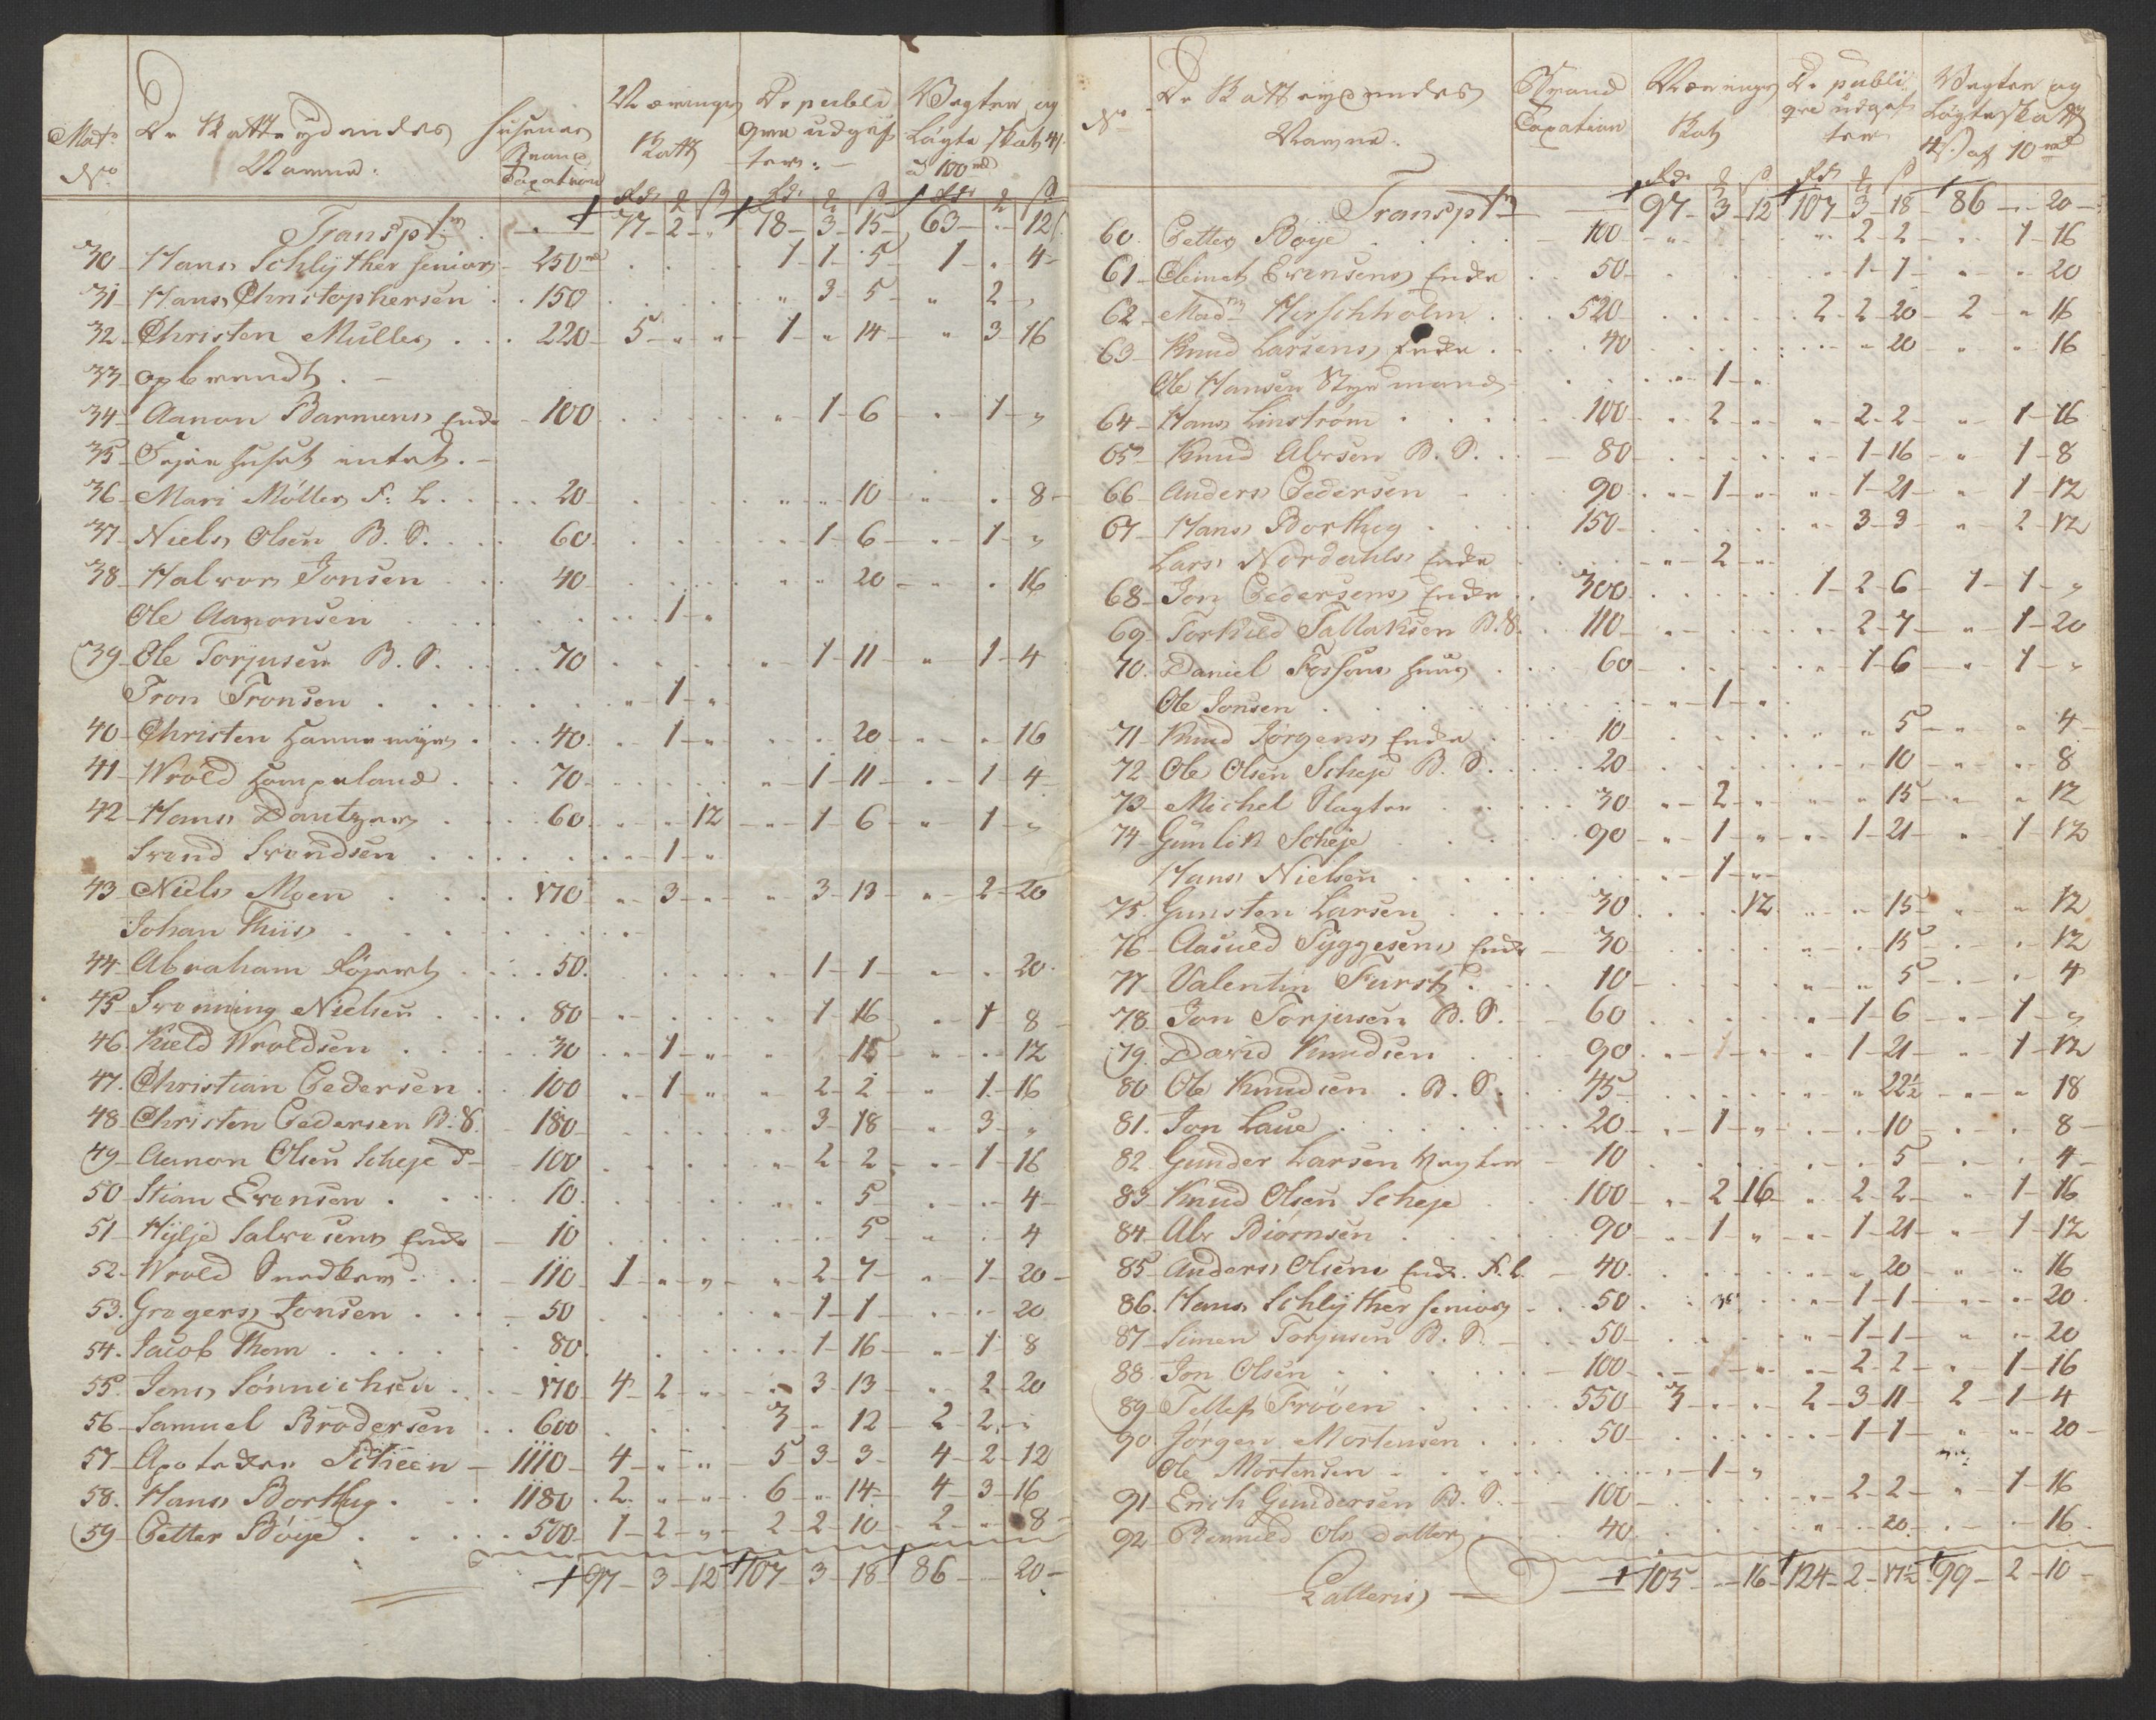 Mat: No De Skatteydendes Navne: Husenes Brand Taxation Nærings Skatt De publi qve udgif ter: Vægter og Løgte skat 4 s. a 100 rd
Rdr ₰ s Rdr ₰ s Rdr ₰ s
Transptn 77 2 " 78 3 15 63 - 12
30 Hans Schlÿther senior 250 rd 1 1 5 1 " 4
31 Hans Christophersen 150 " 3 5 " 2 "
32 Christen Muller 220 5 " " 1 " 14 " 3 16
33 opbrendt
34 Aanon Barmens Enke 100 " 1 6 " 1 "
35 Tøjehuset intet
36 Mari Møller F: L. 20 " " 10 " " 8
37 Niels Olsen B. S. 60 " 1 6 " 1 "
38 Halvor Jonsen 40 " " 20 " " 16
Ole Aanonsen " 1 "
39 Ole Torjusen B. S. 70 " 1 11 " 1 4
Tron Tronsen " 1 "
40 Christen Hannemyr 40 " 1 " " " 20 " " 16
41 Wrold Hampeland 70 " 1 11 " 1 4
42 Hans Dantzer 60 " " 12 " 1 6 " 1 "
Svend Svendsen " 1 "
43 Niels Moen 170 " 3 " " 3 13 " 2 20
Johan Thiis
44 Abraham Føjert 50 " 1 1 " " 20
45 Svenning Nielsen 80 " 1 16 " 1 8
46 Kield Wroldsen 30 " 1 " " 15 " " 12
47 Christian Pedersen 100 " 1 " " 2 2 " 1 16
48 Christen Pedersen B. S. 180 " 3 18 " 3 "
49 Aanon Olsen Scheje 100 " 2 2 " 1 16
50 Stian Evensen 10 " " 5 " " 4
51 Hylje Salvesens Enke 10 " 5 " " 4
52 Wrold Snedker 110 1 " " " 2 7 " 1 20
53 Gregers Jonsen 50 " 1 1 " " 20
54 Jacob Thom 80 " 1 16 " 1 8
55 Jens Sønnichsen 170 4 2 " " 3 13 " 2 20
56 Samuel Brodersen 600 3 " 12 2 2 "
57 Apoteker Scheen 1110 4 " " 5 3 3 4 2 12
58 Hans Borthug 1180 2 " " 6 " 14 4 3 16
59 Petter Bøye 500 1 2 " 2 2 10 2 " 8
97 3 12 107 3 18 86 20
No De Skatteydendes Navne: Brand Taxation Nærings Skat De publi qve udgif ter Vægter og Løgteskatt 4 s. af 10 rd
Rdr ₰ s Rdr ₰ s
Transptn 97 3 12 107 3 18 86 - 20
60 Petter Bøye 100 " " 2 2 " 1 16
61 Clemet Evensens Enke 50 " 1 1 " " 20
62 Madm Hirschholm 520 2 2 20 2 " 16
63 Knud Larsens Enke 40 " 20 " " 16
Ole Hansen Styrmand " 1 "
64 Hans Linstrøm 100 " 2 " " 2 2 " 1 16
65 Knud Abrsen B. S. 80 " 1 16 " 1 8
66 Anders Pedersen 90 " 1 " " 1 21 " 1 12
67 Hans Borthug 150 " 3 3 " 2 12
Lars Nordahls Enke " 2 "
68 Jon Pedersens Enke 300 1 2 6 1 1 "
69 Torkild Tallaksen B. S. 110 " " 2 7 " 1 20
70 Daniel Fossons Huus 60 " 1 6 " 1 "
Ole Jonsen " 1 "
71 Knud Jörgens Enke 10 " " 5 " " 4
72 Ole Olsen Scheje B. S. 20 " 10 " " 8
73 Michel Slagter 30 " 2 " " " 15 " " 12
74 Gunlik Scheje 90 " 1 " " 1 21 " 1 12
Hans Nielsen " 1 "
75 Gunsten Larsen 30 12 " " 15 " " 12
76 Aasuld Syggesens Enke 30 " " 15 " " 12
77 Valentin Furst 10 " " 5 " " 4
78 Jon Torjusen B. S. 60 " 1 6 " 1 "
79 David Knudsen 90 " 1 " " 1 21 " 1 12
80 Ole Knudsen B. S. 45 " " 22½ " " 18
81 Jon Laue 20 " 1 " " " 10 " " 8
82 Gunder Larsen Vægter 10 " " 5 " " 4
83 Knud Olsen Scheje 100 " 2 16 " 2 2 " 1 16
84 Abr Biørnsen 90 " 1 " " 1 21 " 1 12
85 Anders Olsens Enke F. L. 40 " " 20 " " 16
86 Hans Schlÿther senior 50 " 1 1 " " 20
87 Simen Torjusen B. S. 50 " 1 1 " " 20
88 Jon Olsen 100 " " " 2 2 " 1 16
89 Tellef Trøoen 550 3 " " 2 3 11 2 1 4
90 Jørgen Mortensen 50 " 1 1 " " 20
Ole Mortensen " 1 "
91 Erich Gundersen B. S. 100 " 2 2 " 1 16
92 Ronnild Ols datter 40 " " 20 " " 16
Lateris 105 " 16 124 2 17½ 99 2 10